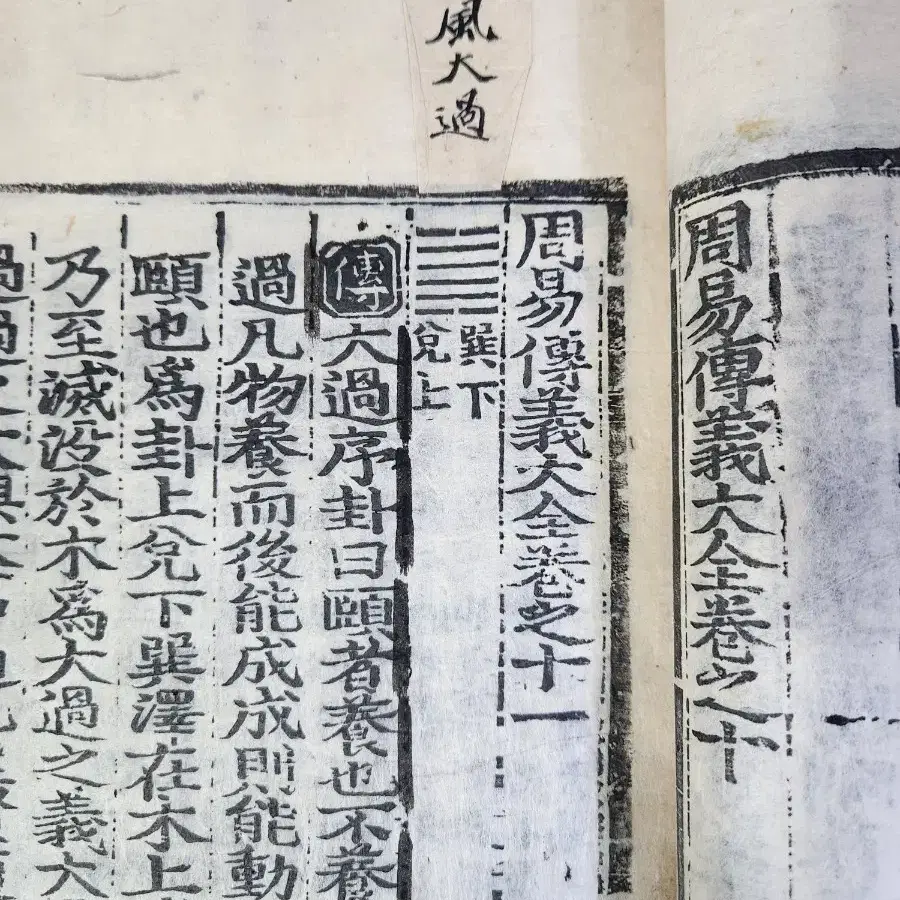 周易傳義大全卷之十
風大過
周易傳義大全卷之十一
巽下
兌上
傳大過序卦曰頤者養也不養
過凡物養而後能成成則能動
頤也爲卦上兌下巽澤在木上
乃至滅没於木爲大過之義大